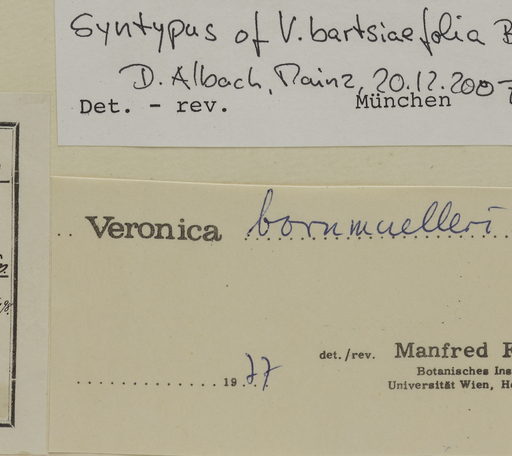 Syntypus of V. bartsiaefolia B
D. Albach, Mainz, 20.12.2007
Det. - rev. München
.. Veronica bornmuelleri
det./rev. Manfred F
Botanisches Ins
............ 1977
Universität Wien, H